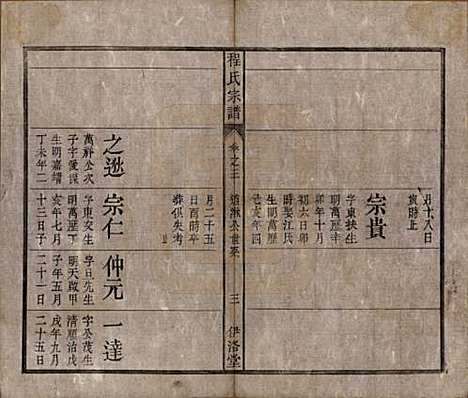 月十八日
寅時止
宗貴
字東扶生
明萬歷辛
卯年十月
初六日卯
時娶江氏
生明萬歷
己亥年四
程氏宗譜
卷之三
道淋公世系
三
伊洛堂
月二十五
日酉時卒
葬俱失考
止
之遜
萬祥公次
子字愛溪
生明嘉靖
丁未年二
宗仁
字東安生
明萬歷丁
亥年七月
十三日子
仲元
字日先生
明天啟甲
子年五月
二十一日
一達
字公茂生
清順治戊
戌年九月
二十五日